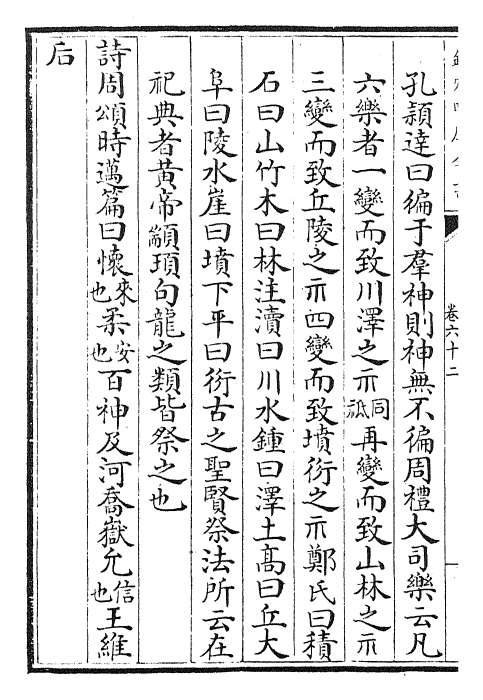 卷六十二
孔頴達曰徧于羣神則神無不徧周禮大司樂云凡
六樂者一變而致川澤之示同祗再變而致山林之示
三變而致丘陵之示四變而致墳衍之示鄭氏曰積
石曰山竹木曰林注瀆曰川水鍾曰澤土髙曰丘大
阜曰陵水崖曰墳下平曰衍古之聖賢祭法所云在
祀典者黄帝顓頊句龍之類皆祭之也
詩周頌時邁篇曰懷來也柔安也百神及河喬嶽允信也王維
后